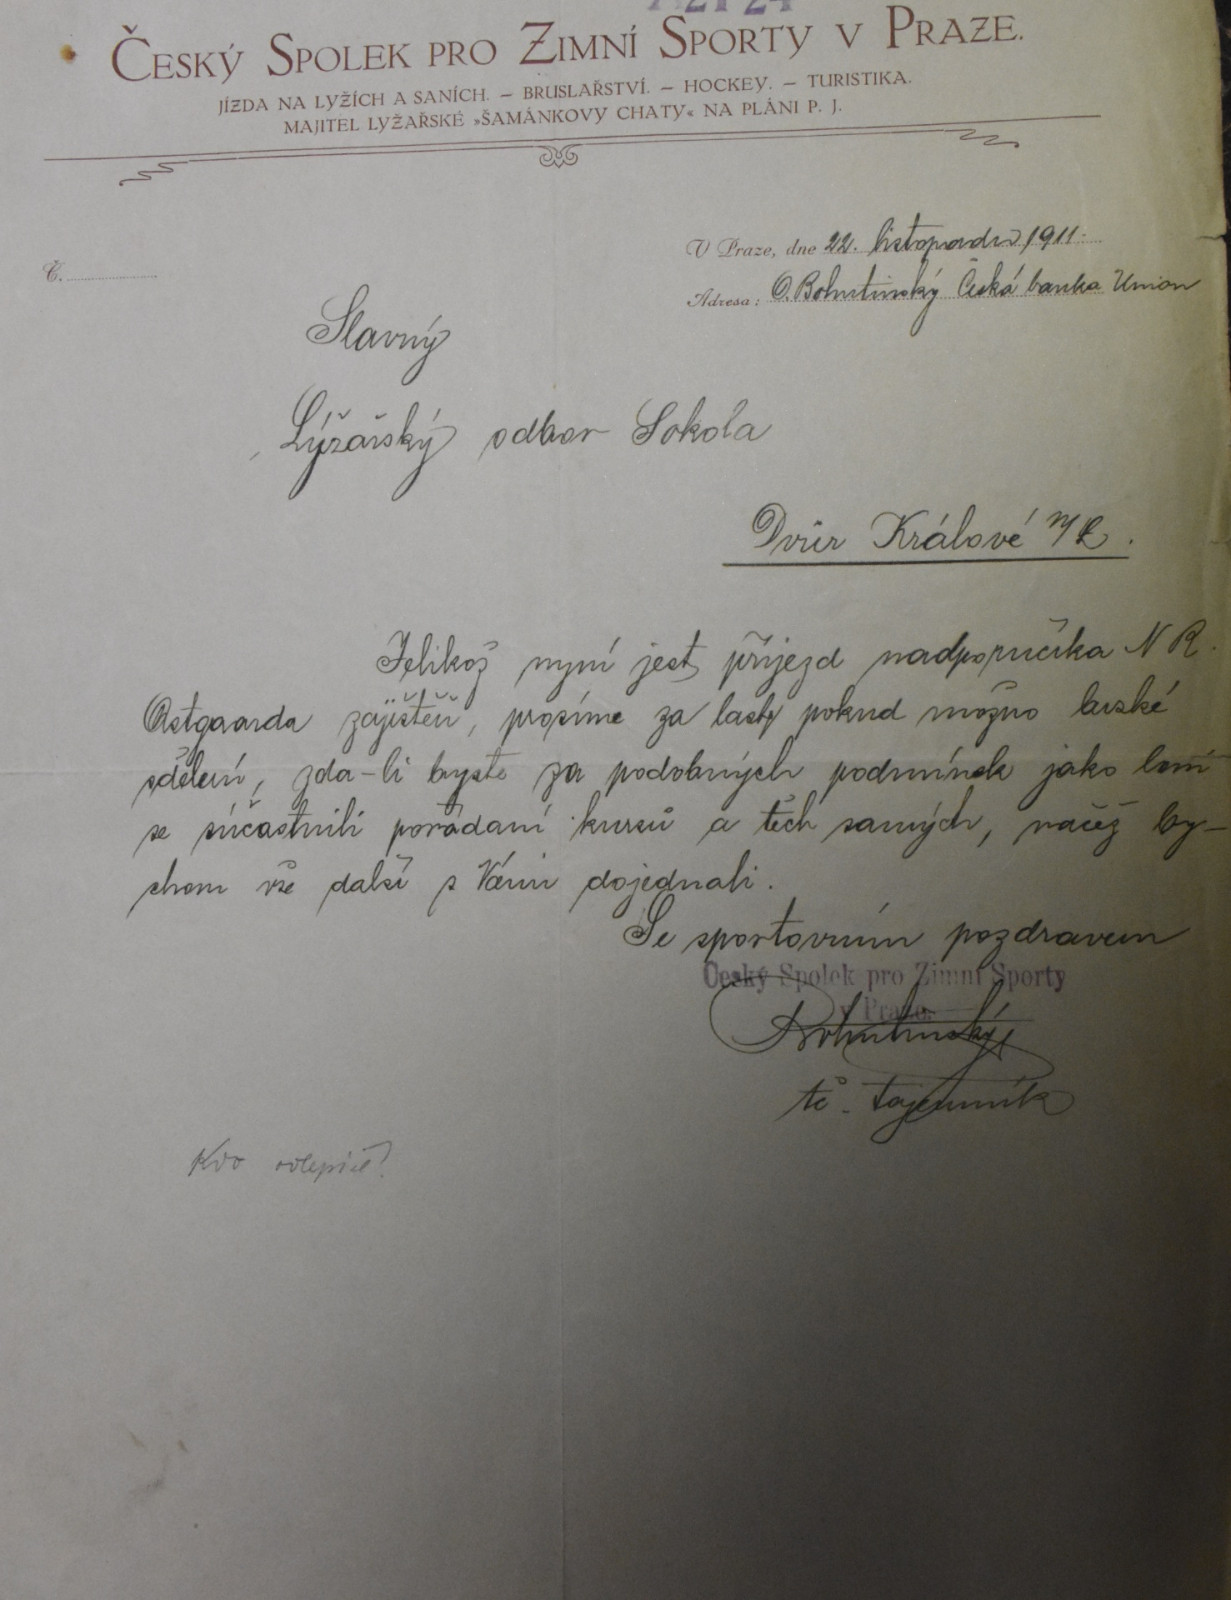 ČESKÝ SPOLEK PRO ZIMNÍ SPORTY V PRAZE.
JÍZDA NA LYŽÍCH A SANÍCH. – BRUSLAŘSTVÍ. – HOCKEY. – TURISTIKA.
MAJITEL LYŽAŘSKÉ »ŠAMÁNKOVY CHATY« NA PLÁNI P. J.
V Praze, dne 22. listopadu 1911.
Č.
Adresa: O. Bohutinský Česká banka Union
Slavný
Lyžařský odbor Sokola
Dvůr Králové n/L.
Jelikož nyní jest příjezd nadporučíka N R.
Ostgaarda zajištěn, prosíme za lask. pokud možno brzké
sdělení, zda-li byste za podobných podmínek jako loni
se súčastnili pořádání kursů a těch samých, načež by-
chom vše další s Vámi dojednali.
Se sportovním pozdravem
Český Spolek pro Zimní Sporty
v Praze.
Bohutinský
tč. tajemník
Kdo